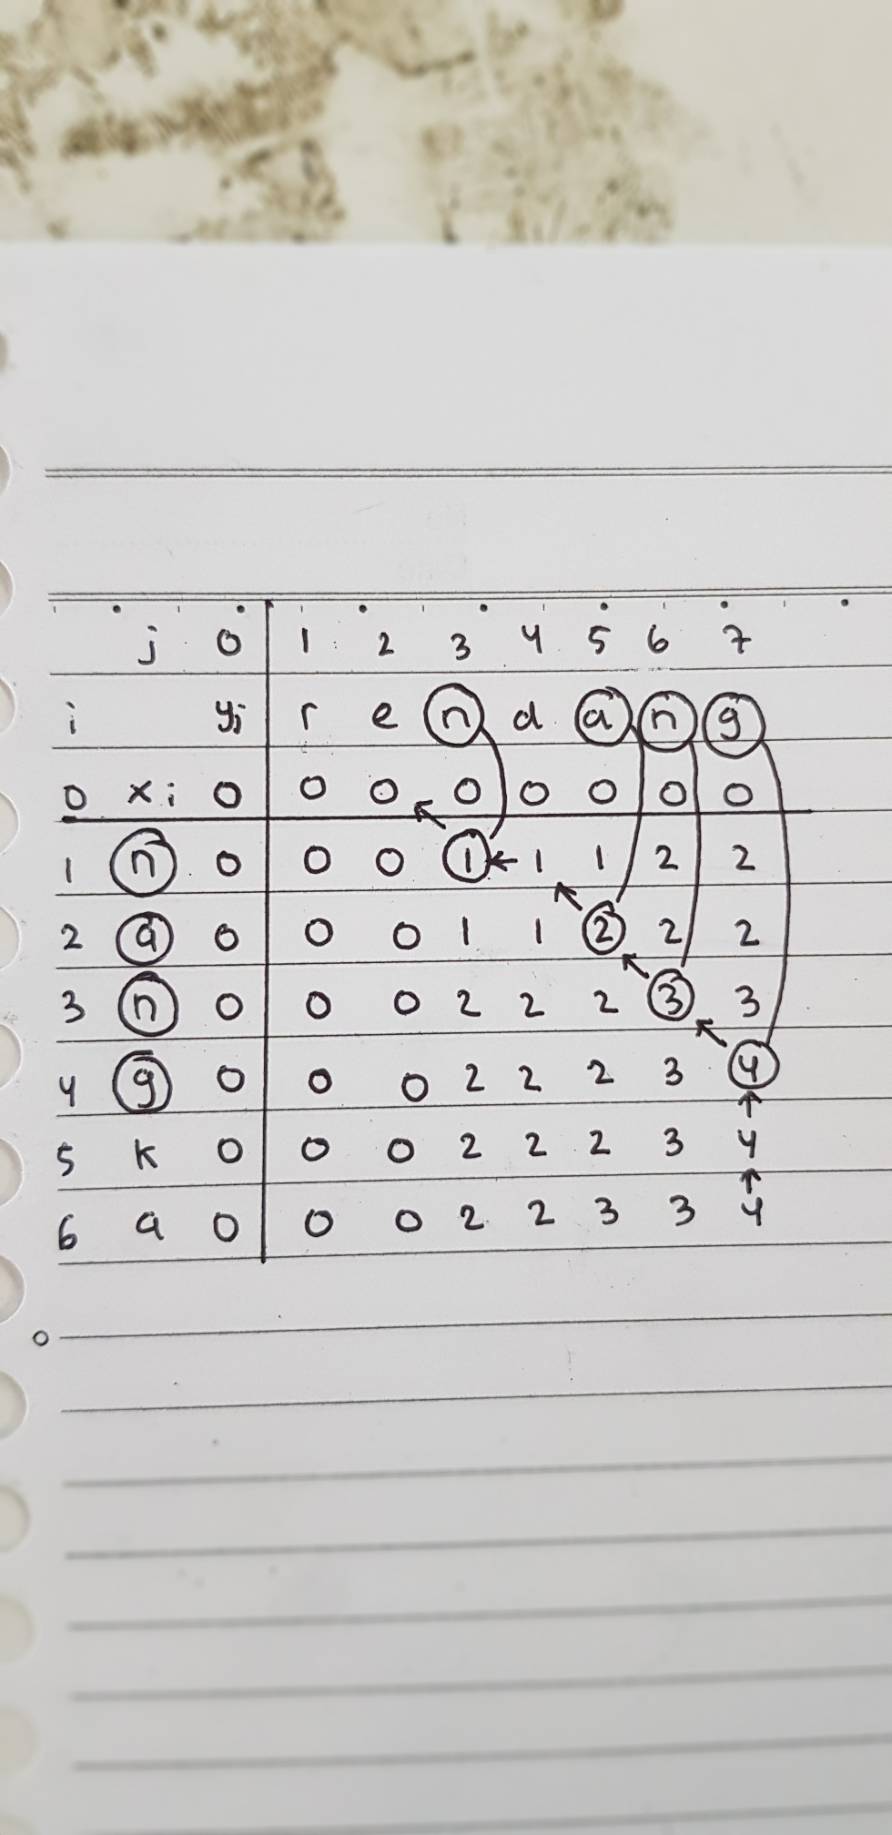 j 0 1 2 3 4 5 6 7
i yj r e n d a n g
0 xi 0 0 0 0 0 0 0 0
1 n 0 0 0 1 1 1 2 2
2 a 0 0 0 1 1 2 2 2
3 n 0 0 0 2 2 2 3 3
4 g 0 0 0 2 2 2 3 4
5 k 0 0 0 2 2 2 3 4
6 a 0 0 0 2 2 3 3 4